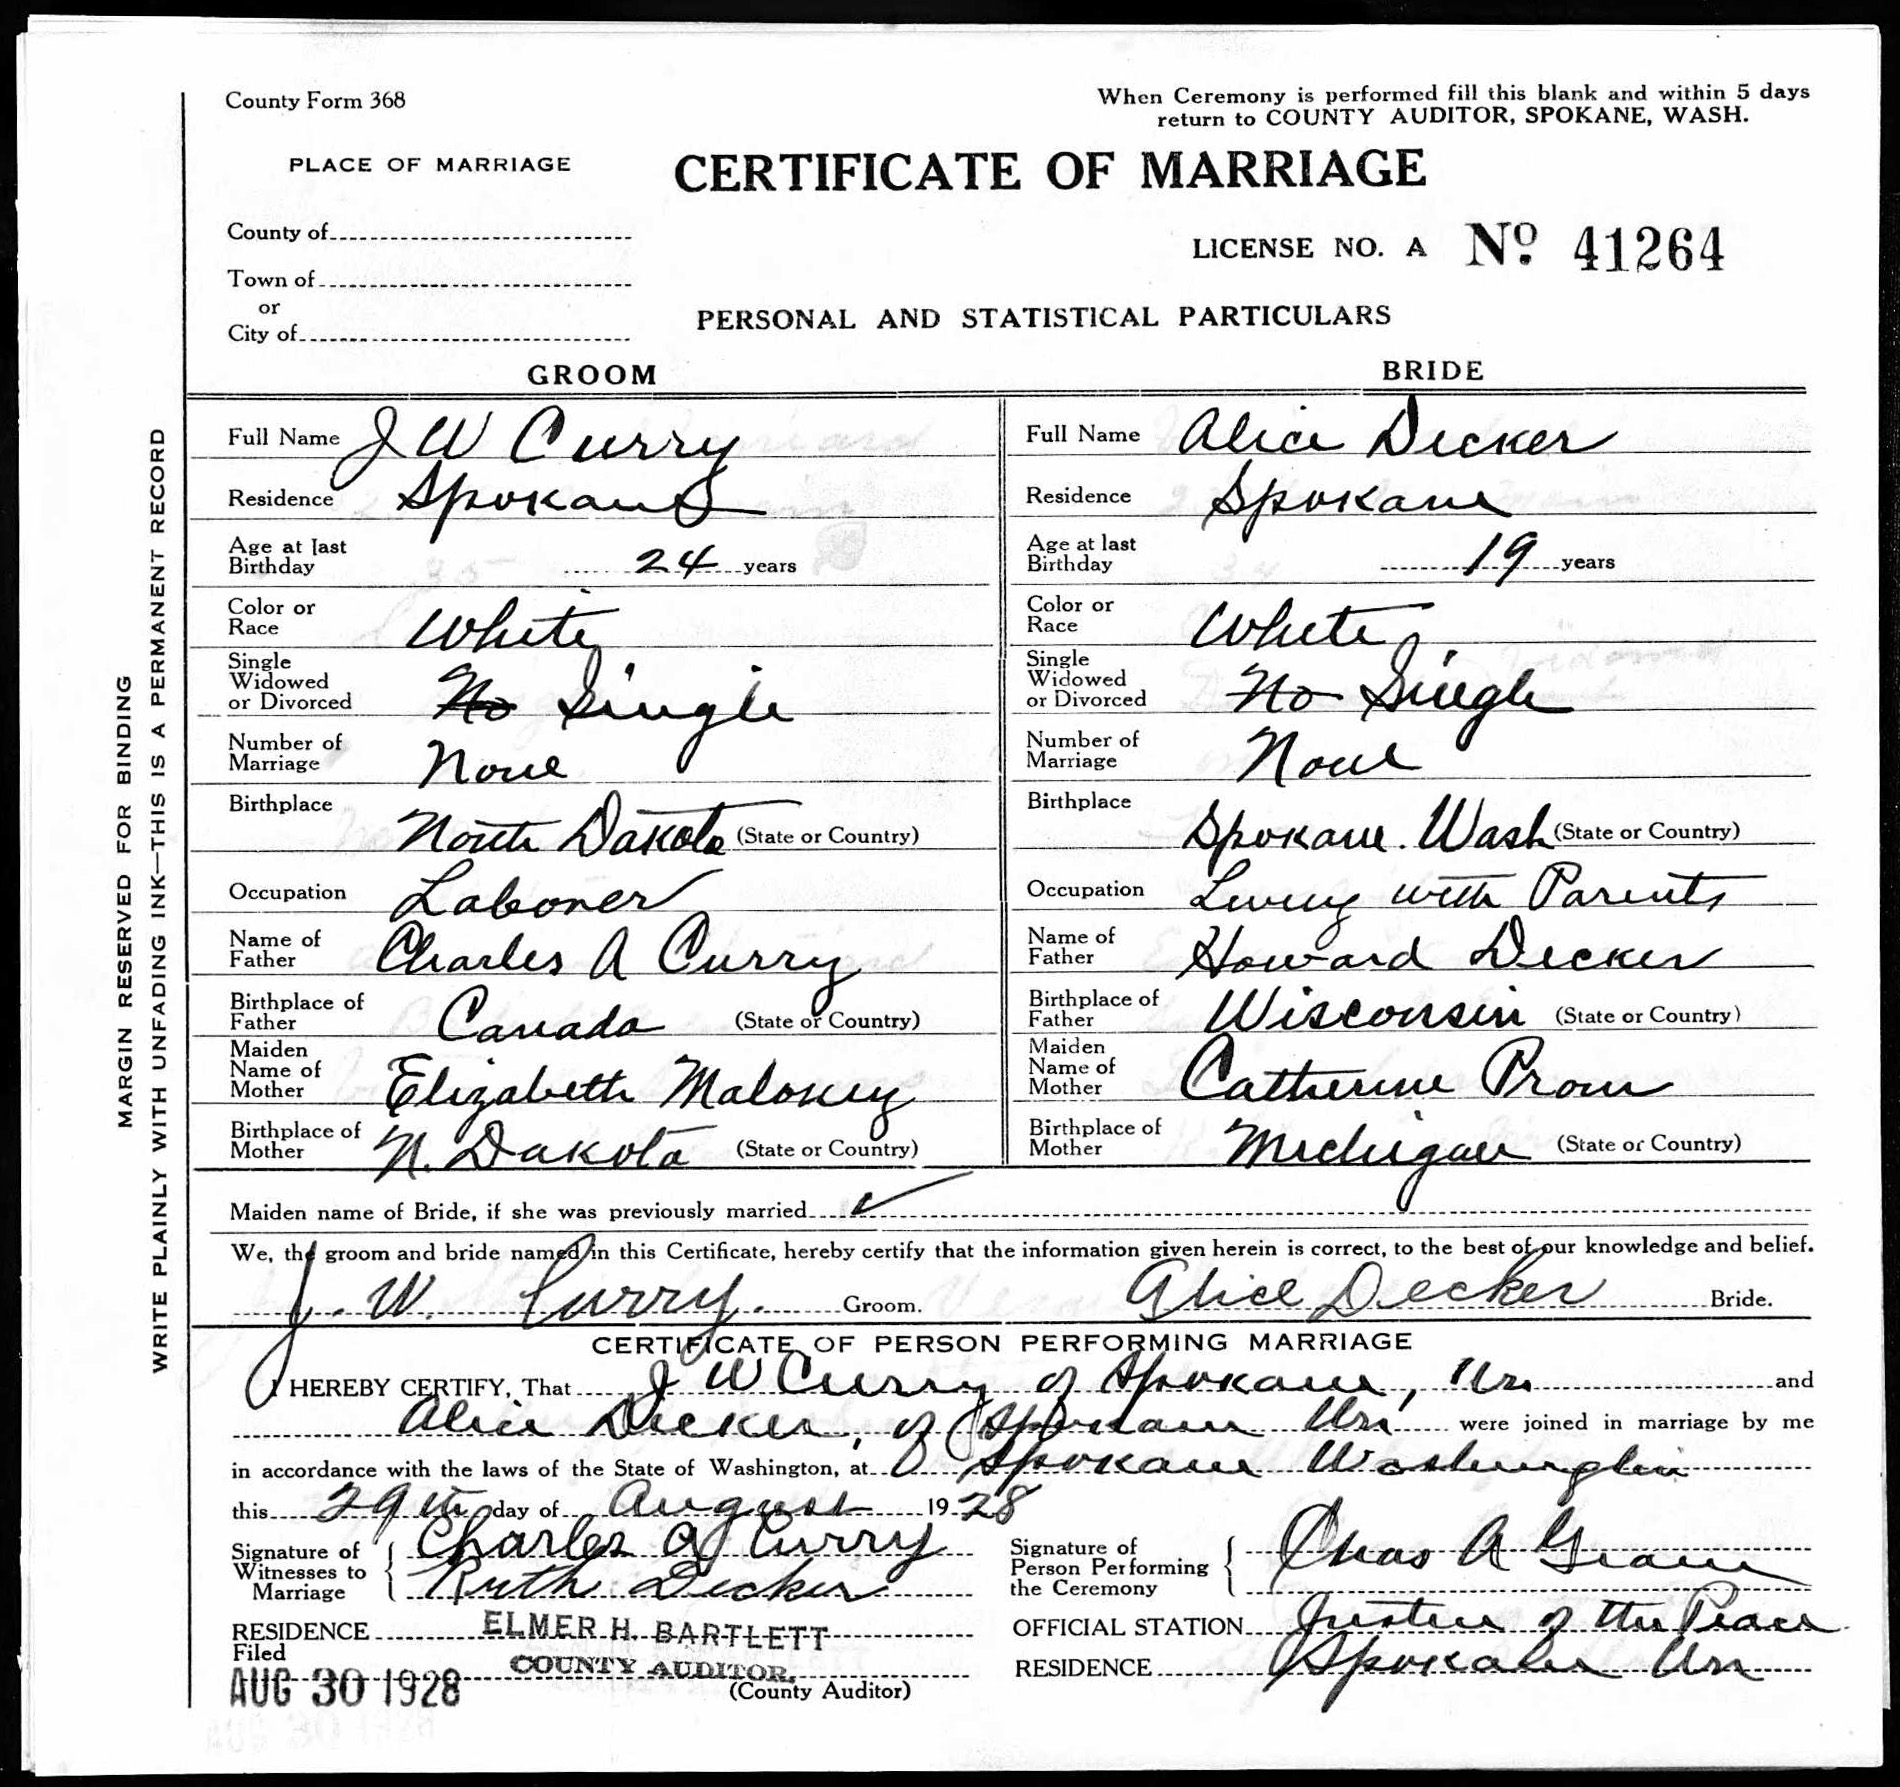 County Form 368
When Ceremony is performed fill this blank and within 5 days
return to COUNTY AUDITOR, SPOKANE, WASH.
PLACE OF MARRIAGE
CERTIFICATE OF MARRIAGE
County of
LICENSE NO. A Nº 41264
Town of
or
City of
PERSONAL AND STATISTICAL PARTICULARS
GROOM
Full Name J W Curry
Residence Spokane
Age at last
Birthday 24 years
Color or
Race White
Single
Widowed
or Divorced No Single
Number of
Marriage None
Birthplace North Dakota (State or Country)
Occupation Laborer
Name of
Father Charles A Curry
Birthplace of
Father Canada (State or Country)
Maiden
Name of
Mother Elizabeth Maloney
Birthplace of
Mother N. Dakota (State or Country)
BRIDE
Full Name Alice Decker
Residence Spokane
Age at last
Birthday 19 years
Color or
Race White
Single
Widowed
or Divorced No Single
Number of
Marriage None
Birthplace Spokane. Wash (State or Country)
Occupation Living with Parents
Name of
Father Howard Decker
Birthplace of
Father Wisconsin (State or Country)
Maiden
Name of
Mother Catherine
Birthplace of
Mother Michigan (State or Country)
Maiden name of Bride, if she was previously married ✓
We, the groom and bride named in this Certificate, hereby certify that the information given herein is correct, to the best of our knowledge and belief.
J. W. Curry. Groom. Alice Decker Bride.
CERTIFICATE OF PERSON PERFORMING MARRIAGE
I HEREBY CERTIFY, That J W Curry of Spokane, Wn and
Alice Decker, of Spokane Wn were joined in marriage by me
in accordance with the laws of the State of Washington, at Spokane Washington
this 29th day of August 1928
Signature of
Witnesses to
Marriage
Charles A Curry
Ruth Decker
Signature of
Person Performing
the Ceremony
Chas A
RESIDENCE
ELMER H. BARTLETT
OFFICIAL STATION Justice of the Peace
Filed
AUG 30 1928
COUNTY AUDITOR.
(County Auditor)
RESIDENCE Spokane Wn
MARGIN RESERVED FOR BINDING
WRITE PLAINLY WITH UNFADING INK—THIS IS A PERMANENT RECORD